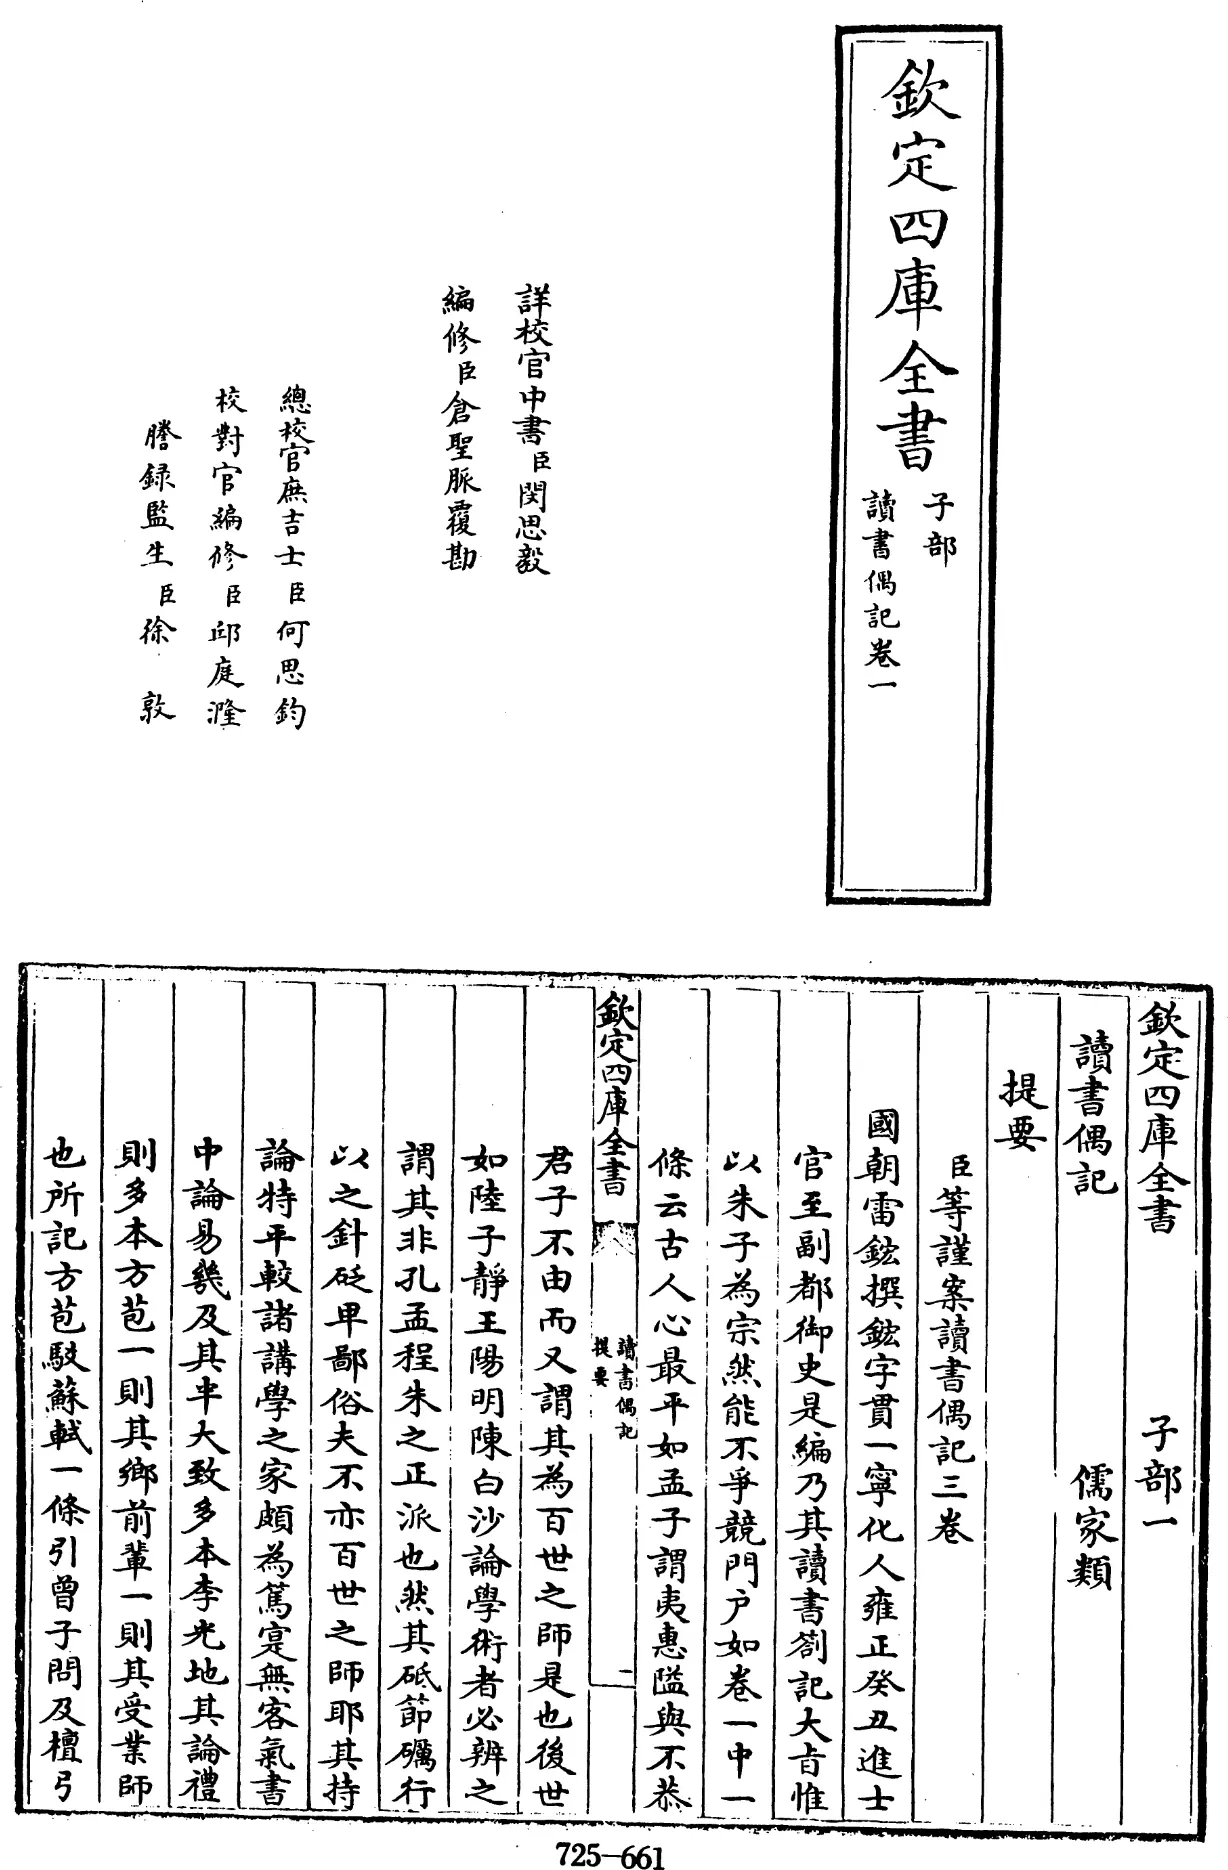 欽定四庫全書
子部
讀書偶記卷一
詳校官中書臣閔思毅
編修臣倉聖脈覆勘
總校官庶吉士臣何思鈞
校對官編修臣邱庭漋
謄錄監生臣徐敦
欽定四庫全書 子部一
讀書偶記 儒家類
提要
臣等謹案讀書偶記三卷
國朝雷鋐撰鋐字貫一寧化人雍正癸丑進士
官至副都御史是編乃其讀書劄記大旨惟
以朱子為宗然能不爭競門户如卷一中一
條云古人心最平如孟子謂夷惠隘與不恭
欽定四庫全書
讀書偶記
提要
一
君子不由而又謂其為百世之師是也後世
如陸子靜王陽明陳白沙論學術者必辨之
謂其非孔孟程朱之正派也然其砥節礪行
以之針砭卑鄙俗夫不亦百世之師耶其持
論特平較諸講學之家頗為篤寔無客氣書
中論易幾及其半大致多本李光地其論禮
則多本方苞一則其鄉前輩一則其受業師
也所記方苞駁蘇軾一條引曾子問及檀弓
725-661